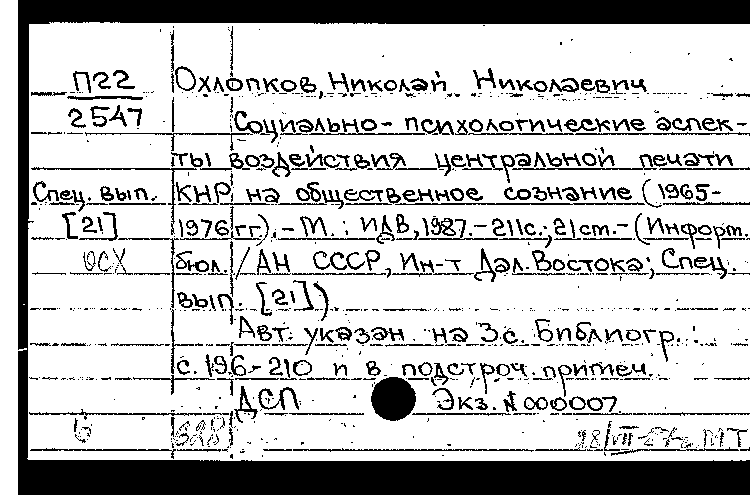 П22 Охлопков, Николай Николаевич
2547 Социально-психологические аспек-
ты воздействия центральной печати
Спец. вып. КНР на общественное сознание (1965-
[21] 1976 гг). - М.: ИДВ, 1987. - 211с.; 21см. - (Информ.
ОСХ бюл. / АН СССР, Ин-т Дал. Востока; Спец.
вып. [21])
Авт. указан на 3 с. Библиогр.:
с. 196-210 и в подстроч. примеч.
ДСП Экз. № 000007
6 628 МТ